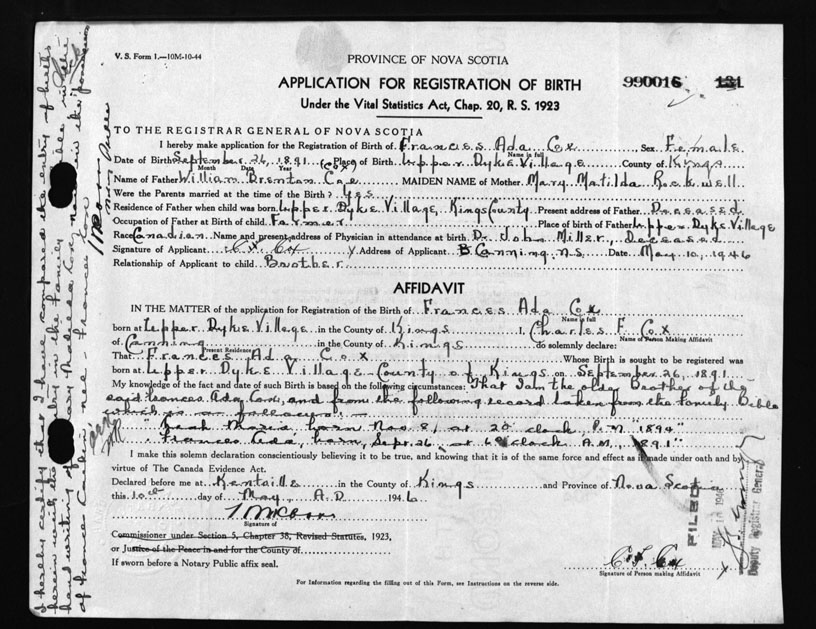 V. S. Form 1.—10M-10-44
PROVINCE OF NOVA SCOTIA
APPLICATION FOR REGISTRATION OF BIRTH
990016 131
Under the Vital Statistics Act, Chap. 20, R. S. 1923
TO THE REGISTRAR GENERAL OF NOVA SCOTIA
I hereby make application for the Registration of Birth of Frances Ada Cox Sex Female
Name in full
Date of Birth September 26, 1891 Place of Birth Upper Dyke Village County of Kings
Month Date Year
(Cox)
Name of Father William Brenton Coxe MAIDEN NAME of Mother Mary Matilda Rockwell
Were the Parents married at the time of the Birth? Yes
Residence of Father when child was born Upper Dyke Village, Kings County Present address of Father Deceased
Occupation of Father at Birth of child Farmer Place of birth of Father Upper Dyke Village
Race Canadian Name and present address of Physician in attendance at birth Dr. John Miller, Deceased
Signature of Applicant C. F. Cox Address of Applicant Canning, N.S. Date May 10, 1946
Relationship of Applicant to child Brother
AFFIDAVIT
IN THE MATTER of the application for Registration of the Birth of Frances Ada Cox
Name in full
born at Upper Dyke Village in the County of Kings I, Charles F. Cox
Name of Person Making Affidavit
of Canning in the County of Kings do solemnly declare:
Present Residence
That Frances Ada Cox Whose Birth is sought to be registered was
born at Upper Dyke Village County of Kings on September 26, 1891
My knowledge of the fact and date of such Birth is based on the following circumstances: That I am the older Brother of the
said Frances Ada Cox, and from the following record taken from the Family Bible
which is as follows:—
Marie born Nov. 8, at 2 o'clock, P.M. "1894"
Frances Ada, born, Sept. 26 at 6 o'clock A.M., "1891"
I make this solemn declaration conscientiously believing it to be true, and knowing that it is of the same force and effect as if made under oath and by
virtue of The Canada Evidence Act.
Declared before me at Kentville in the County of Kings and Province of Nova Scotia
this 10th day of May, A.D. 1946
Signature of
Commissioner under Section 5, Chapter 38, Revised Statutes, 1923,
or Justice of the Peace in and for the County of
If sworn before a Notary Public affix seal.
C. F. Cox
Signature of Person making Affidavit
For Information regarding the filling out of this Form, see Instructions on the reverse side.
FILED
1946
Deputy Registrar General
I hereby certify that I have compared the entry of births
herein with the entry in the Family Bible in the
hand writing of